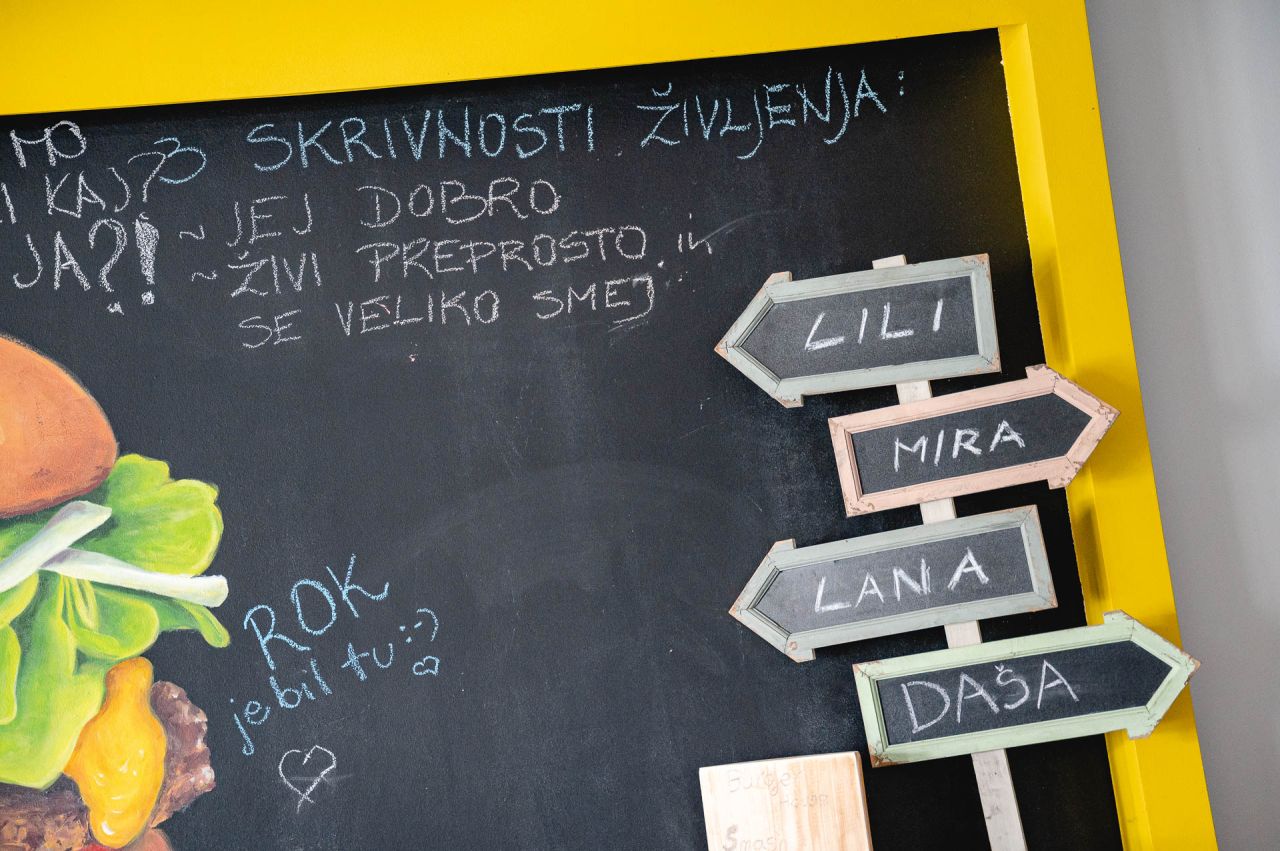 MO
I KAJ?
JA?!
3 SKRIVNOSTI ŽIVLJENJA:
~ JEJ DOBRO
~ ŽIVI PREPROSTO in
SE VELIKO SMEJ
LILI
MIRA
LANA
DAŠA
ROK
je bil tu :-)
Burger
House
Smash